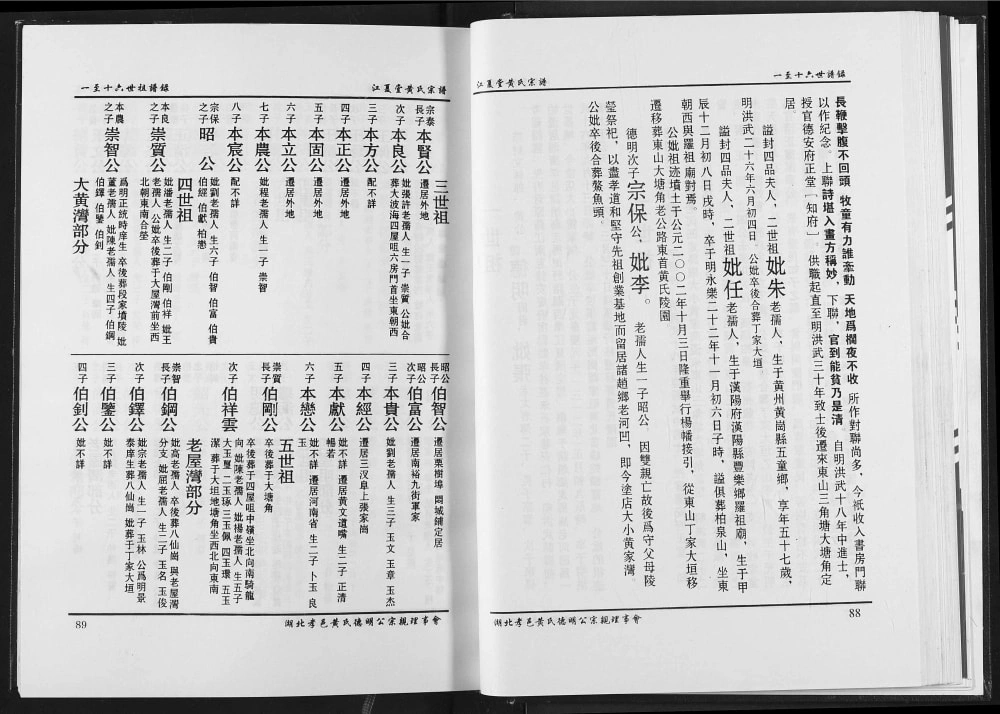 一至十六世譜錄
江夏堂黄氏宗譜
長鞭擊腹不回頭 牧童有力誰牽動 天地爲欄夜不收 所作對聯尚多，今祇收入書房門聯
以作紀念。上聯詩堪入畫方稱妙，下聯，官到能貧乃是清。自明洪武十八年中進士，
授官德安府正堂［知府］。供職起直至明洪武三十年致士後遷來東山三角塘大塘角定
居。
謚封四品夫人，二世祖妣朱老孺人，生于黄州黄崗縣五童鄉，享年五十七歲，
明洪武二十六年六月初四日 公妣卒後合葬丁家大垣。
謚封四品夫人，二世祖妣任老孺人，生于漢陽府漢陽縣豐樂鄉羅祖廟，生于甲
辰十二月初八日戌時，卒于明永樂二十二年十一月初六日子時，謚俱葬柏泉山，坐東
朝西與羅祖廟對焉。
公妣祖迹墳土于公元二〇〇二年十月三日隆重舉行楊幡接引，從東山丁家大垣移
遷移葬東山大塘角老公路東首黄氏陵園
德明次子宗保公，妣李。 老孺人生一子昭公，因雙親亡故後爲守父母陵
塋祭祀，以盡孝道和堅守先祖創業基地而留居諸趙鄉老河凹，即今塗店大小黄家灣。
公妣卒後合葬鰲魚頭。
88
湖北孝邑黄氏德明公宗親理事會
江夏堂黄氏宗譜
一至十六世祖譜錄
三世祖
宗泰長子本賢公 遷居外地
次子本良公 妣樂許老孺人 生一子 崇質 公妣合葬大波海四屋咀六房門首坐東朝西
三子本方公 配不詳
四子本正公 遷居外地
五子本固公 遷居外地
六子本立公 遷居外地
七子本農公 妣程老孺人 生一子 崇智
八子本宸公 配不詳
宗保之子昭 公 妣劉老孺人 生六子 伯智 伯富 伯貴 伯經 伯獻 柏戀
四世祖
本良之子崇質公 妣潘老孺人 生二子 伯剛 伯祥 妣王老孺人 公妣卒後葬于大屋灣前坐西北朝東南合塋
本農之子崇智公 爲明正統時庠生 卒後葬段家墳陵 妣董老孺人 妣陳老孺人 生四子 伯鋼 伯鐸 伯鑒 伯釗
大黄灣部分
昭公長子伯智公 遷居栗樹埠 閔城鋪定居
昭公次子伯富公 遷居南裕九街軍家
三子本貴公 妣劉老孺人 生三子 玉文 玉章 玉杰
四子本經公 遷居三汊阜上張家崗
五子本獻公 妣不詳 遷居黄文道嘴 生二子 正清 暢若
六子本戀公 妣不詳 遷居河南省 生二子 卜玉 良玉
五世祖
崇質長子伯剛公 卒後葬于大塘角
次子伯祥雲 卒後葬于四屋咀中嶺坐北向南騎龍向 妣陳老孺人 妣楊老孺人 生五子 大玉璽 二玉琢 三玉佩 四玉環 五玉潔 葬于大垣地塘角坐西北向東南
老屋灣部分
崇智長子伯鋼公 妣高老孺人 卒後葬八仙崗 與老屋灣分支 妣屈老孺人 生二子 玉名 玉俊
次子伯鐸公 妣宗老孺人 生一子 玉林 公爲明景泰庠生葬八仙崗 妣葬于丁家大垣
三子伯鑒公 妣不詳
四子伯釗公 妣不詳
89
湖北孝邑黄氏德明公宗親理事會